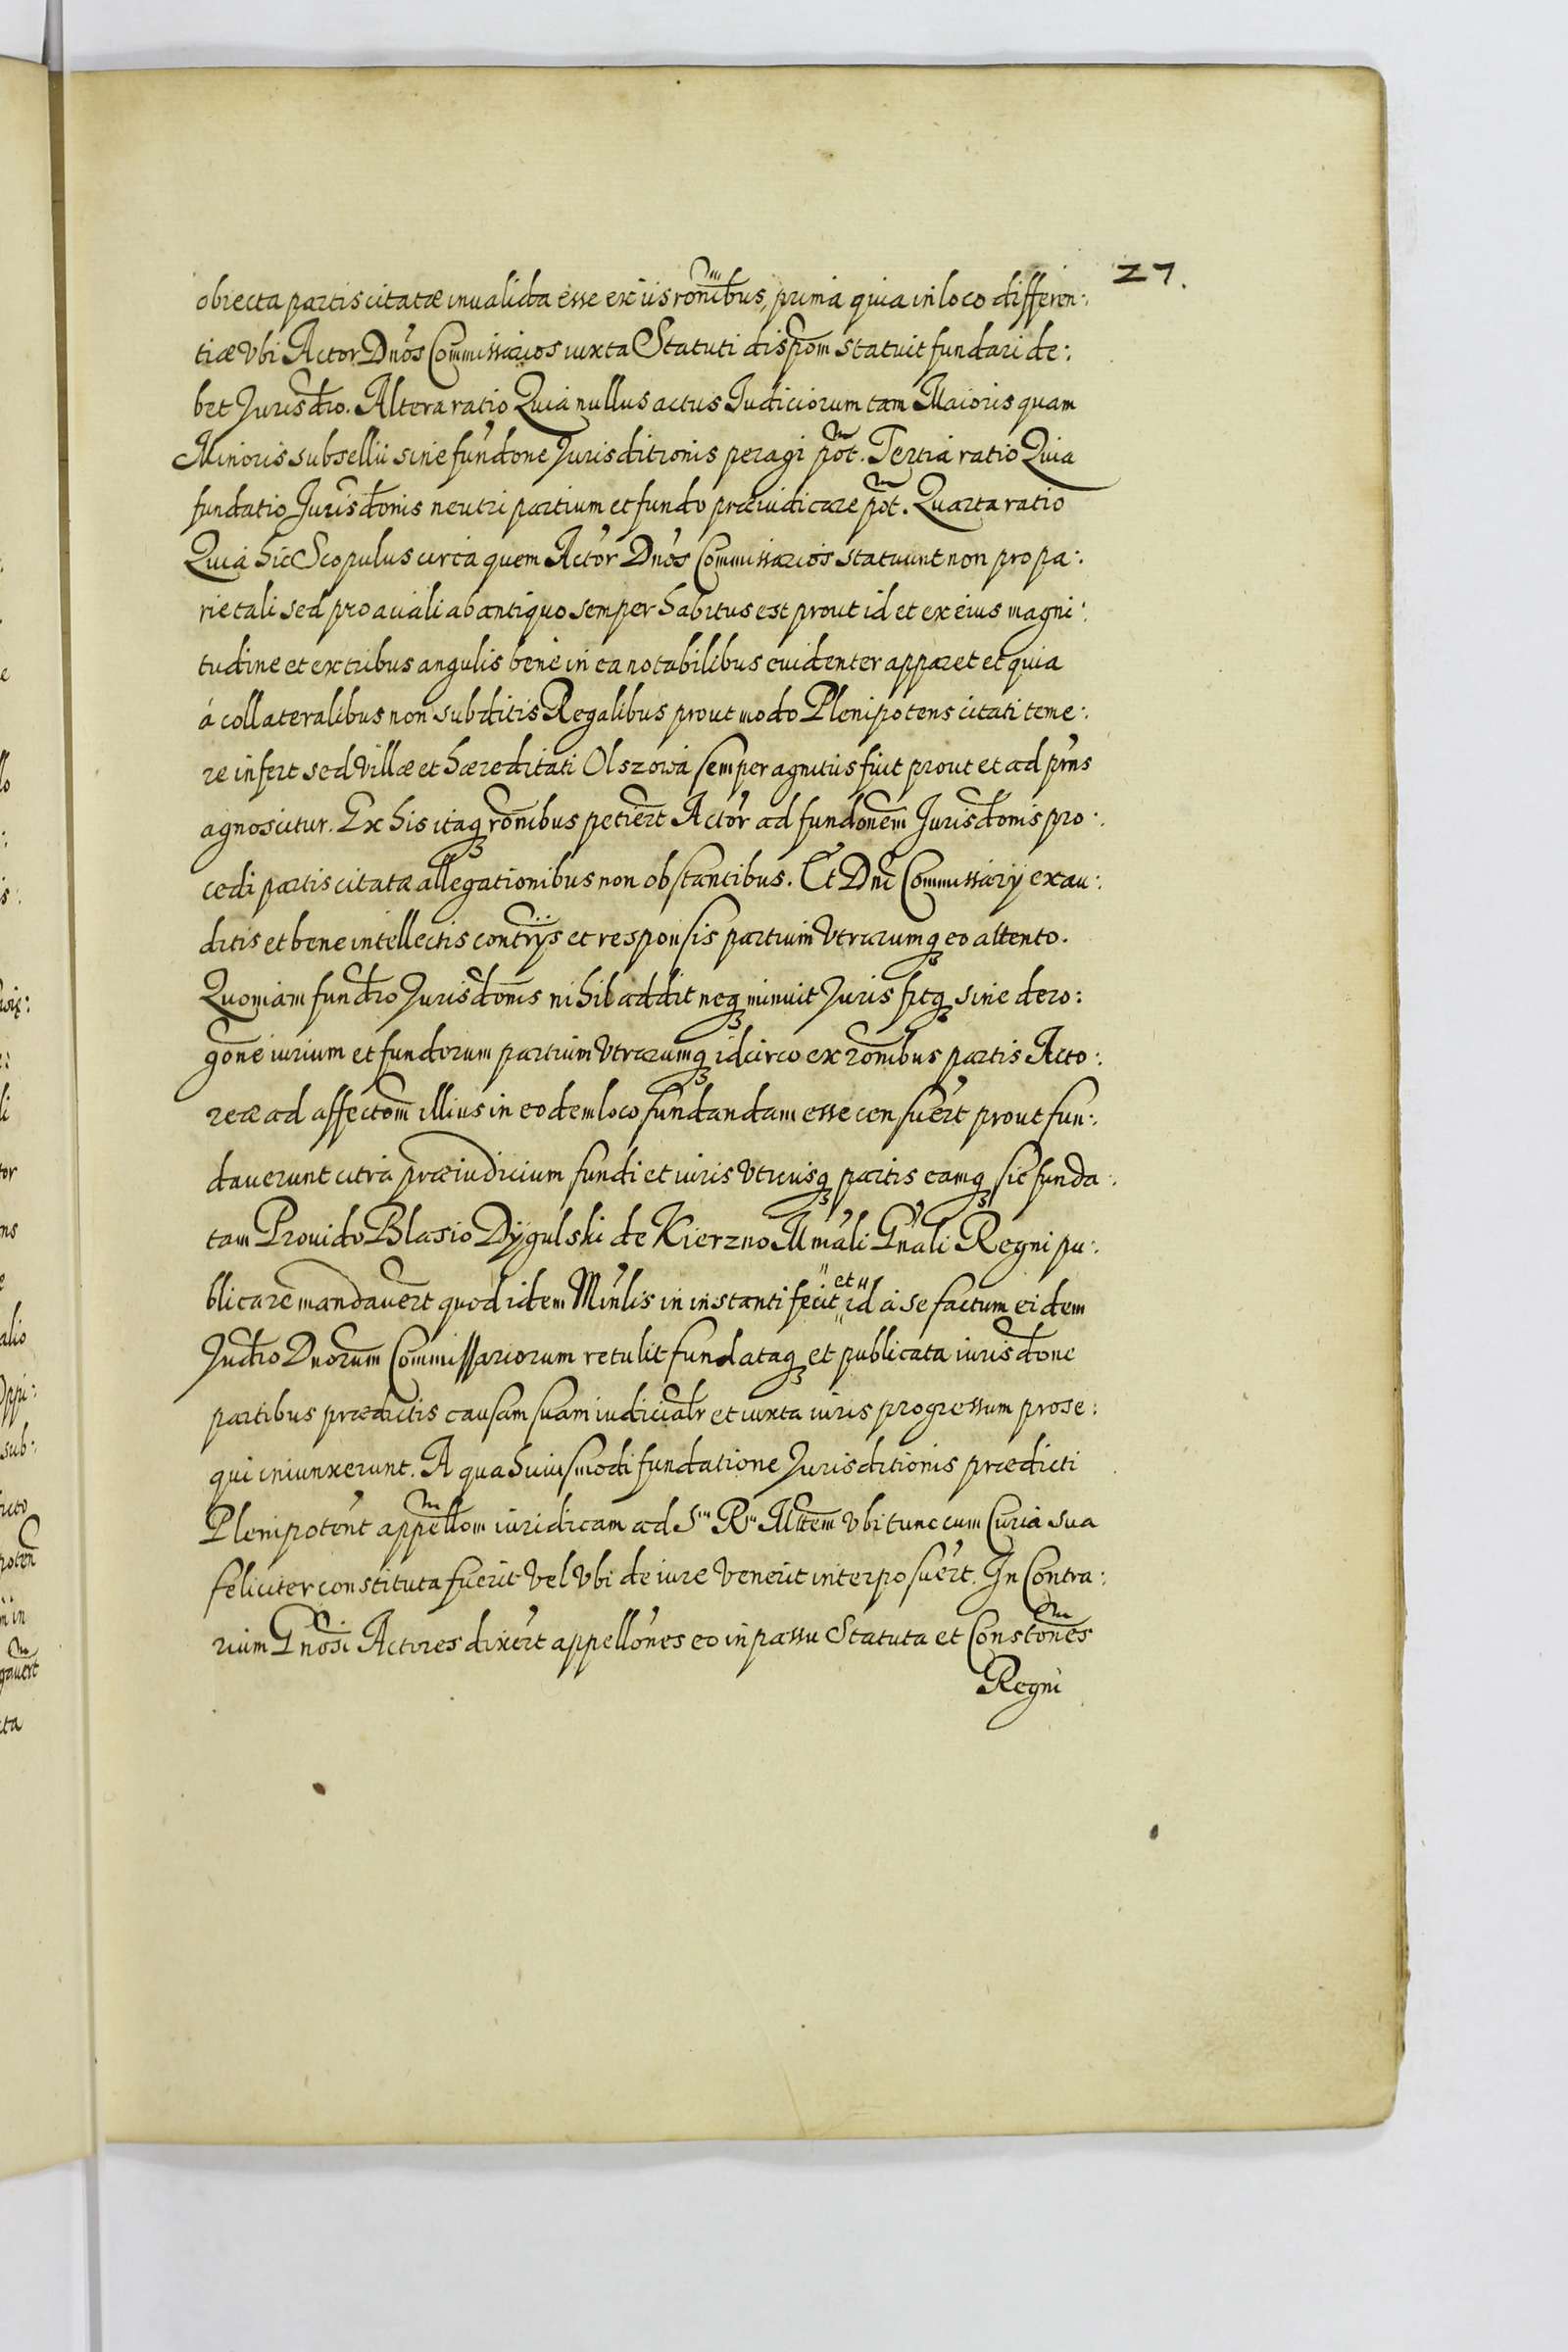 27.
obiecta partis citatæ inualida esse ex iis ronibus, prima quia in loco differen:
tiæ Vbi Actor Dnos Commissarios iuxta Statuti dispom statuit fundari de:
bet Jurisdtio. Altera ratio Quia nullus actus Judiciorum tam Maioris quam
Minoris subsellii sine fundone Jurisditionis peragi pot. Tertia ratio Quia
fundatio Jurisdonis neutri partium et fundo præiudicare pot. Quarta ratio
Quia hic Scopulus circa quem Actor Dnos Commissarios statuunt non pro pa:
rietali sed pro aciali ab antiquo semper habitus est prout id et ex eius magni:
tudine et ex tribus angulis bene in ea notabilibus euidenter apparet et quia
á collateralibus non subditis Regalibus prout modo Plenipotens citati teme:
re infert sed Villæ et hæreditati Olszowa semper agnitus fuit prout et ad prns
agnoscitur. Ex his itaq ronibus petiert Actor ad fundonem Jurisdonis pro:
cedi partis citatæ allegationibus non obstantibus. Et Dni Commissarij exau:
ditis et bene intellectis contrijs et responsis partium Vtrarumq eo attento.
Quoniam fundtio Jurisdonis nihil addit neq minuit Juris fitq sine dero:
gone iurium et fundorum partium Vtrarumq idcirco ex ronibus partis Acto:
reæ ad affectom illius in eodem loco fundandam esse censuert prout fun:
dauerunt citra præiudicium fundi et iuris Vtriusq partis eamq sic funda:
tam Prouido Blasio Dÿgulski de Kierzno Mnrali Gnali Regni pu:
blicare mandauert quod idem Minlis in instanti fecit et id á se factum eidem
Judtio Dnorum Commissariorum retulit fundataq et publicata iurisdone
partibus prædictis causam suam iudicialr et iuxta iuris progressum prose:
qui iniunxerunt. A qua huiusmodi fundatione Jurisditionis prædicti
Plenipotent appellom iuridicam ad S R Mttem Vbi tunc cum Curia sua
feliciter constituta fuerit Vel Vbi de iure Venerit interposuert. In Contra:
rium Gnosi Actores dixert appellones eo in passu Statuta et Constones
Regni